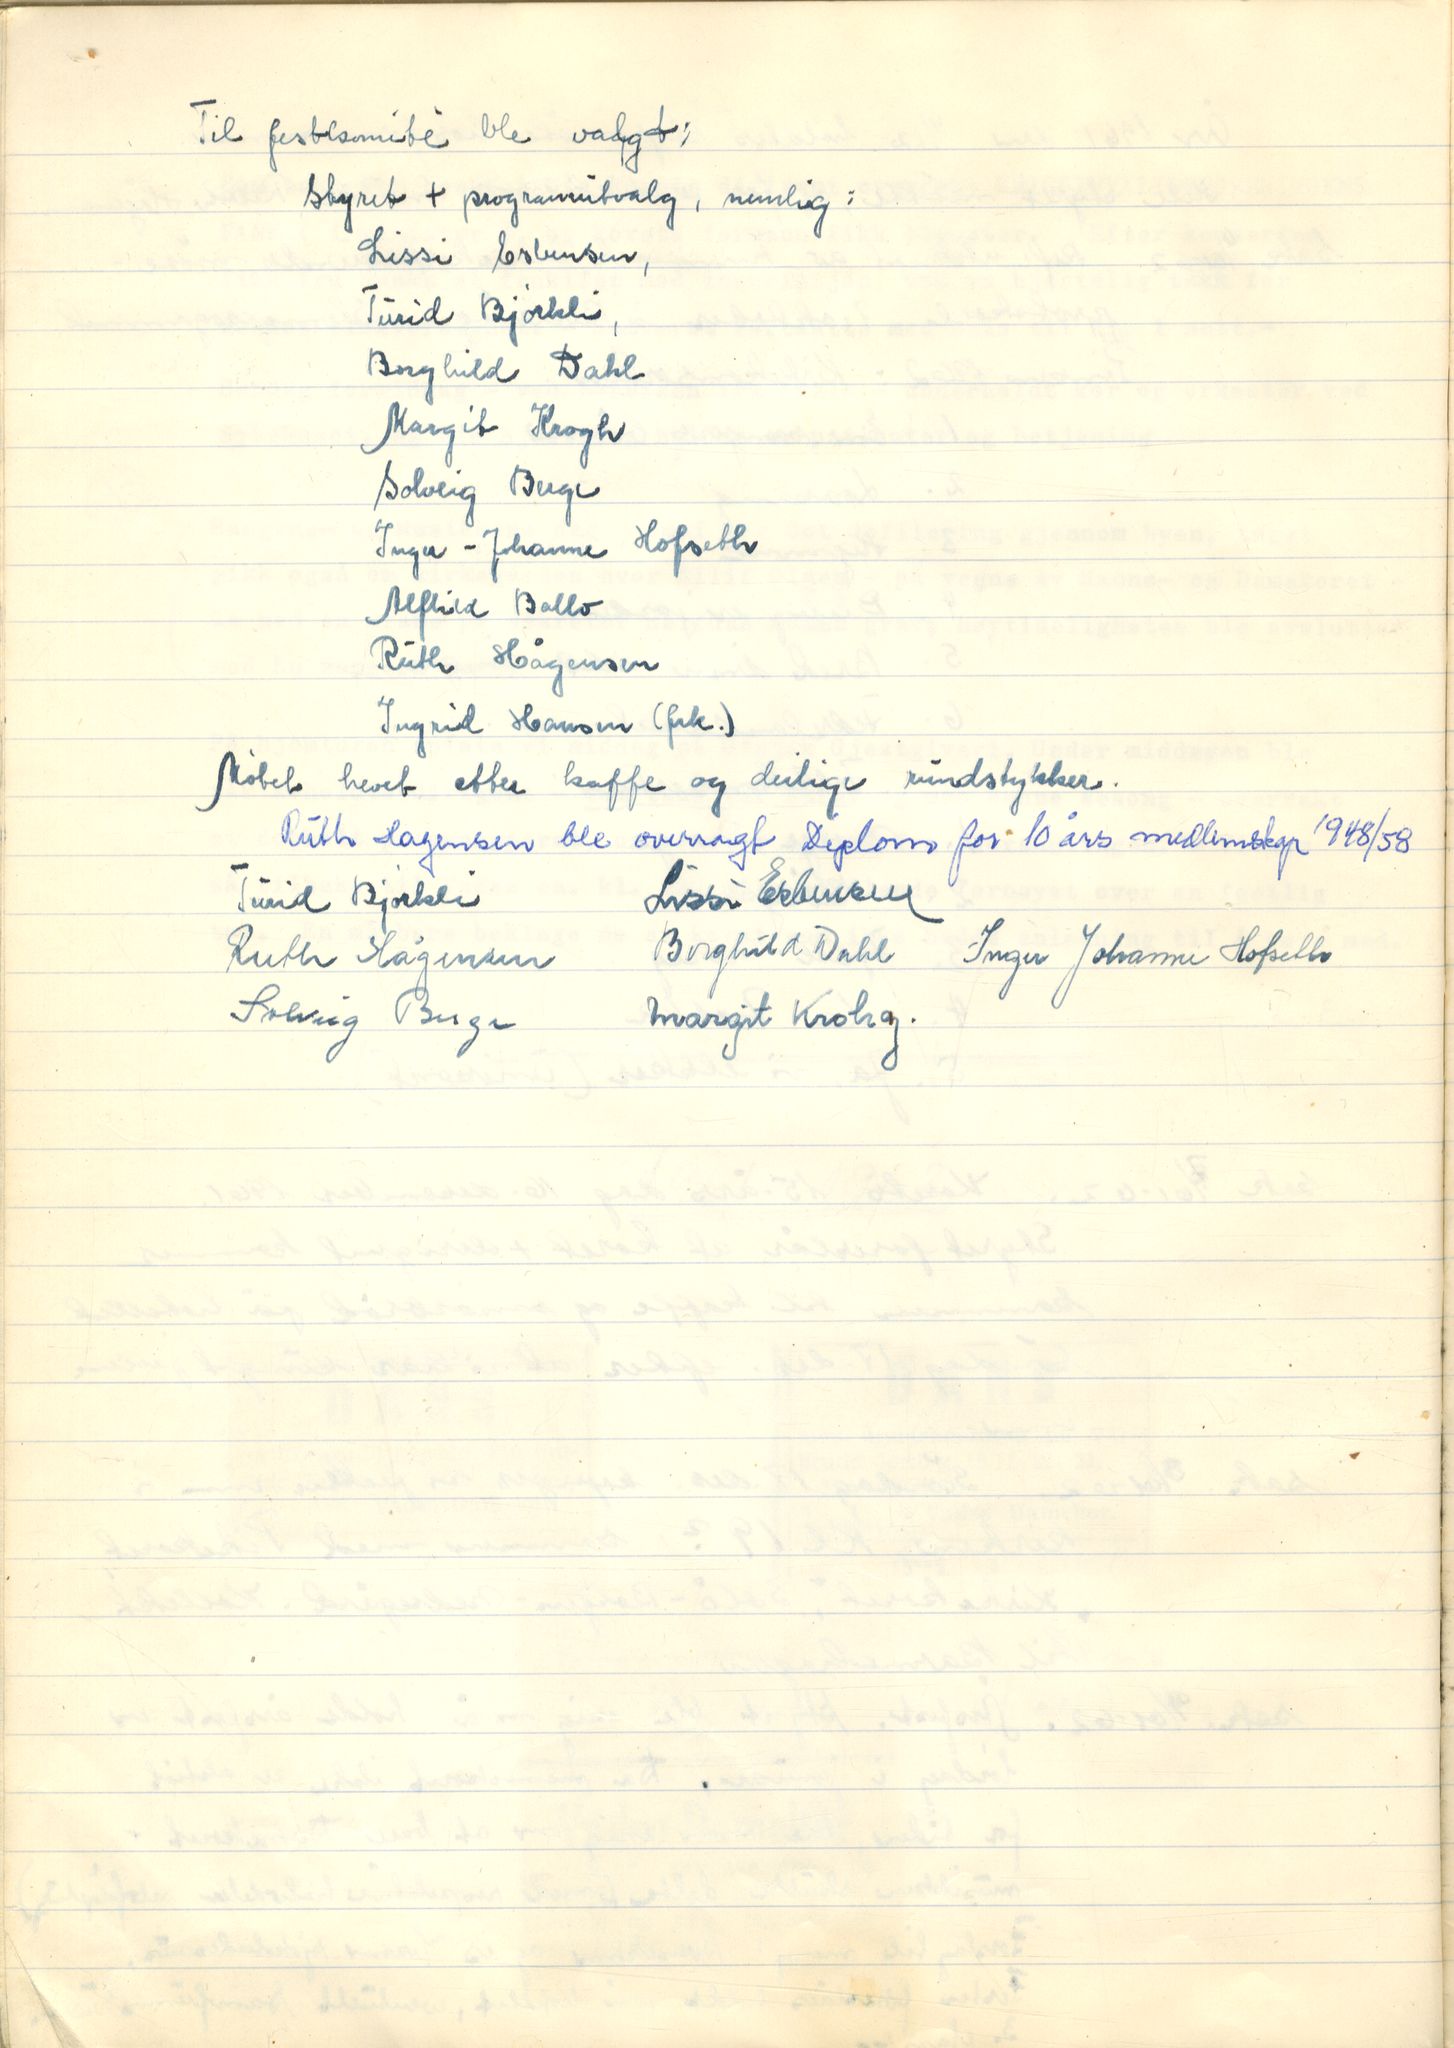 Til festkomité ble valgt;
Styret + programutvalg, nemlig:
Lissi Esbensen,
Turid Bjørkli,
Borghild Dahl
Margit Krogh
Solveig Berge
Inger-Johanne Hofseth
Alfhild Ballo
Ruth Hågensen
Ingrid Hansen (frk.)
Møtet hevet etter kaffe og deilige rundstykker.
Ruth Hagensen ble overragt Diplom for 10 års medlemskap 1948/58
Turid Bjørkli Lissi Esbensen
Ruth Hågensen Borghild Dahl Inger Johanne Hofseth
Solveig Berge Margit Krohg.